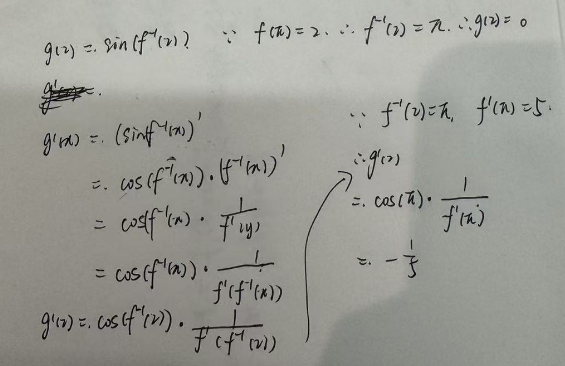 g(2) = sin(f⁻¹(2)) ∵ f(π)=2. ∴ f⁻¹(2)=π. ∴g(2)=0
g'(x) = (sinf⁻¹(x))'
= cos(f⁻¹(x))·(f⁻¹(x))'
= cos(f⁻¹(x)·1/f'(y)
= cos(f⁻¹(x))·1/f'(f⁻¹(x))
g'(2) = cos(f⁻¹(2))·1/f'(f⁻¹(2))
∵ f⁻¹(2)=π, f'(π)=5.
∴g'(2)
= cos(π)·1/f'(π)
= -1/5